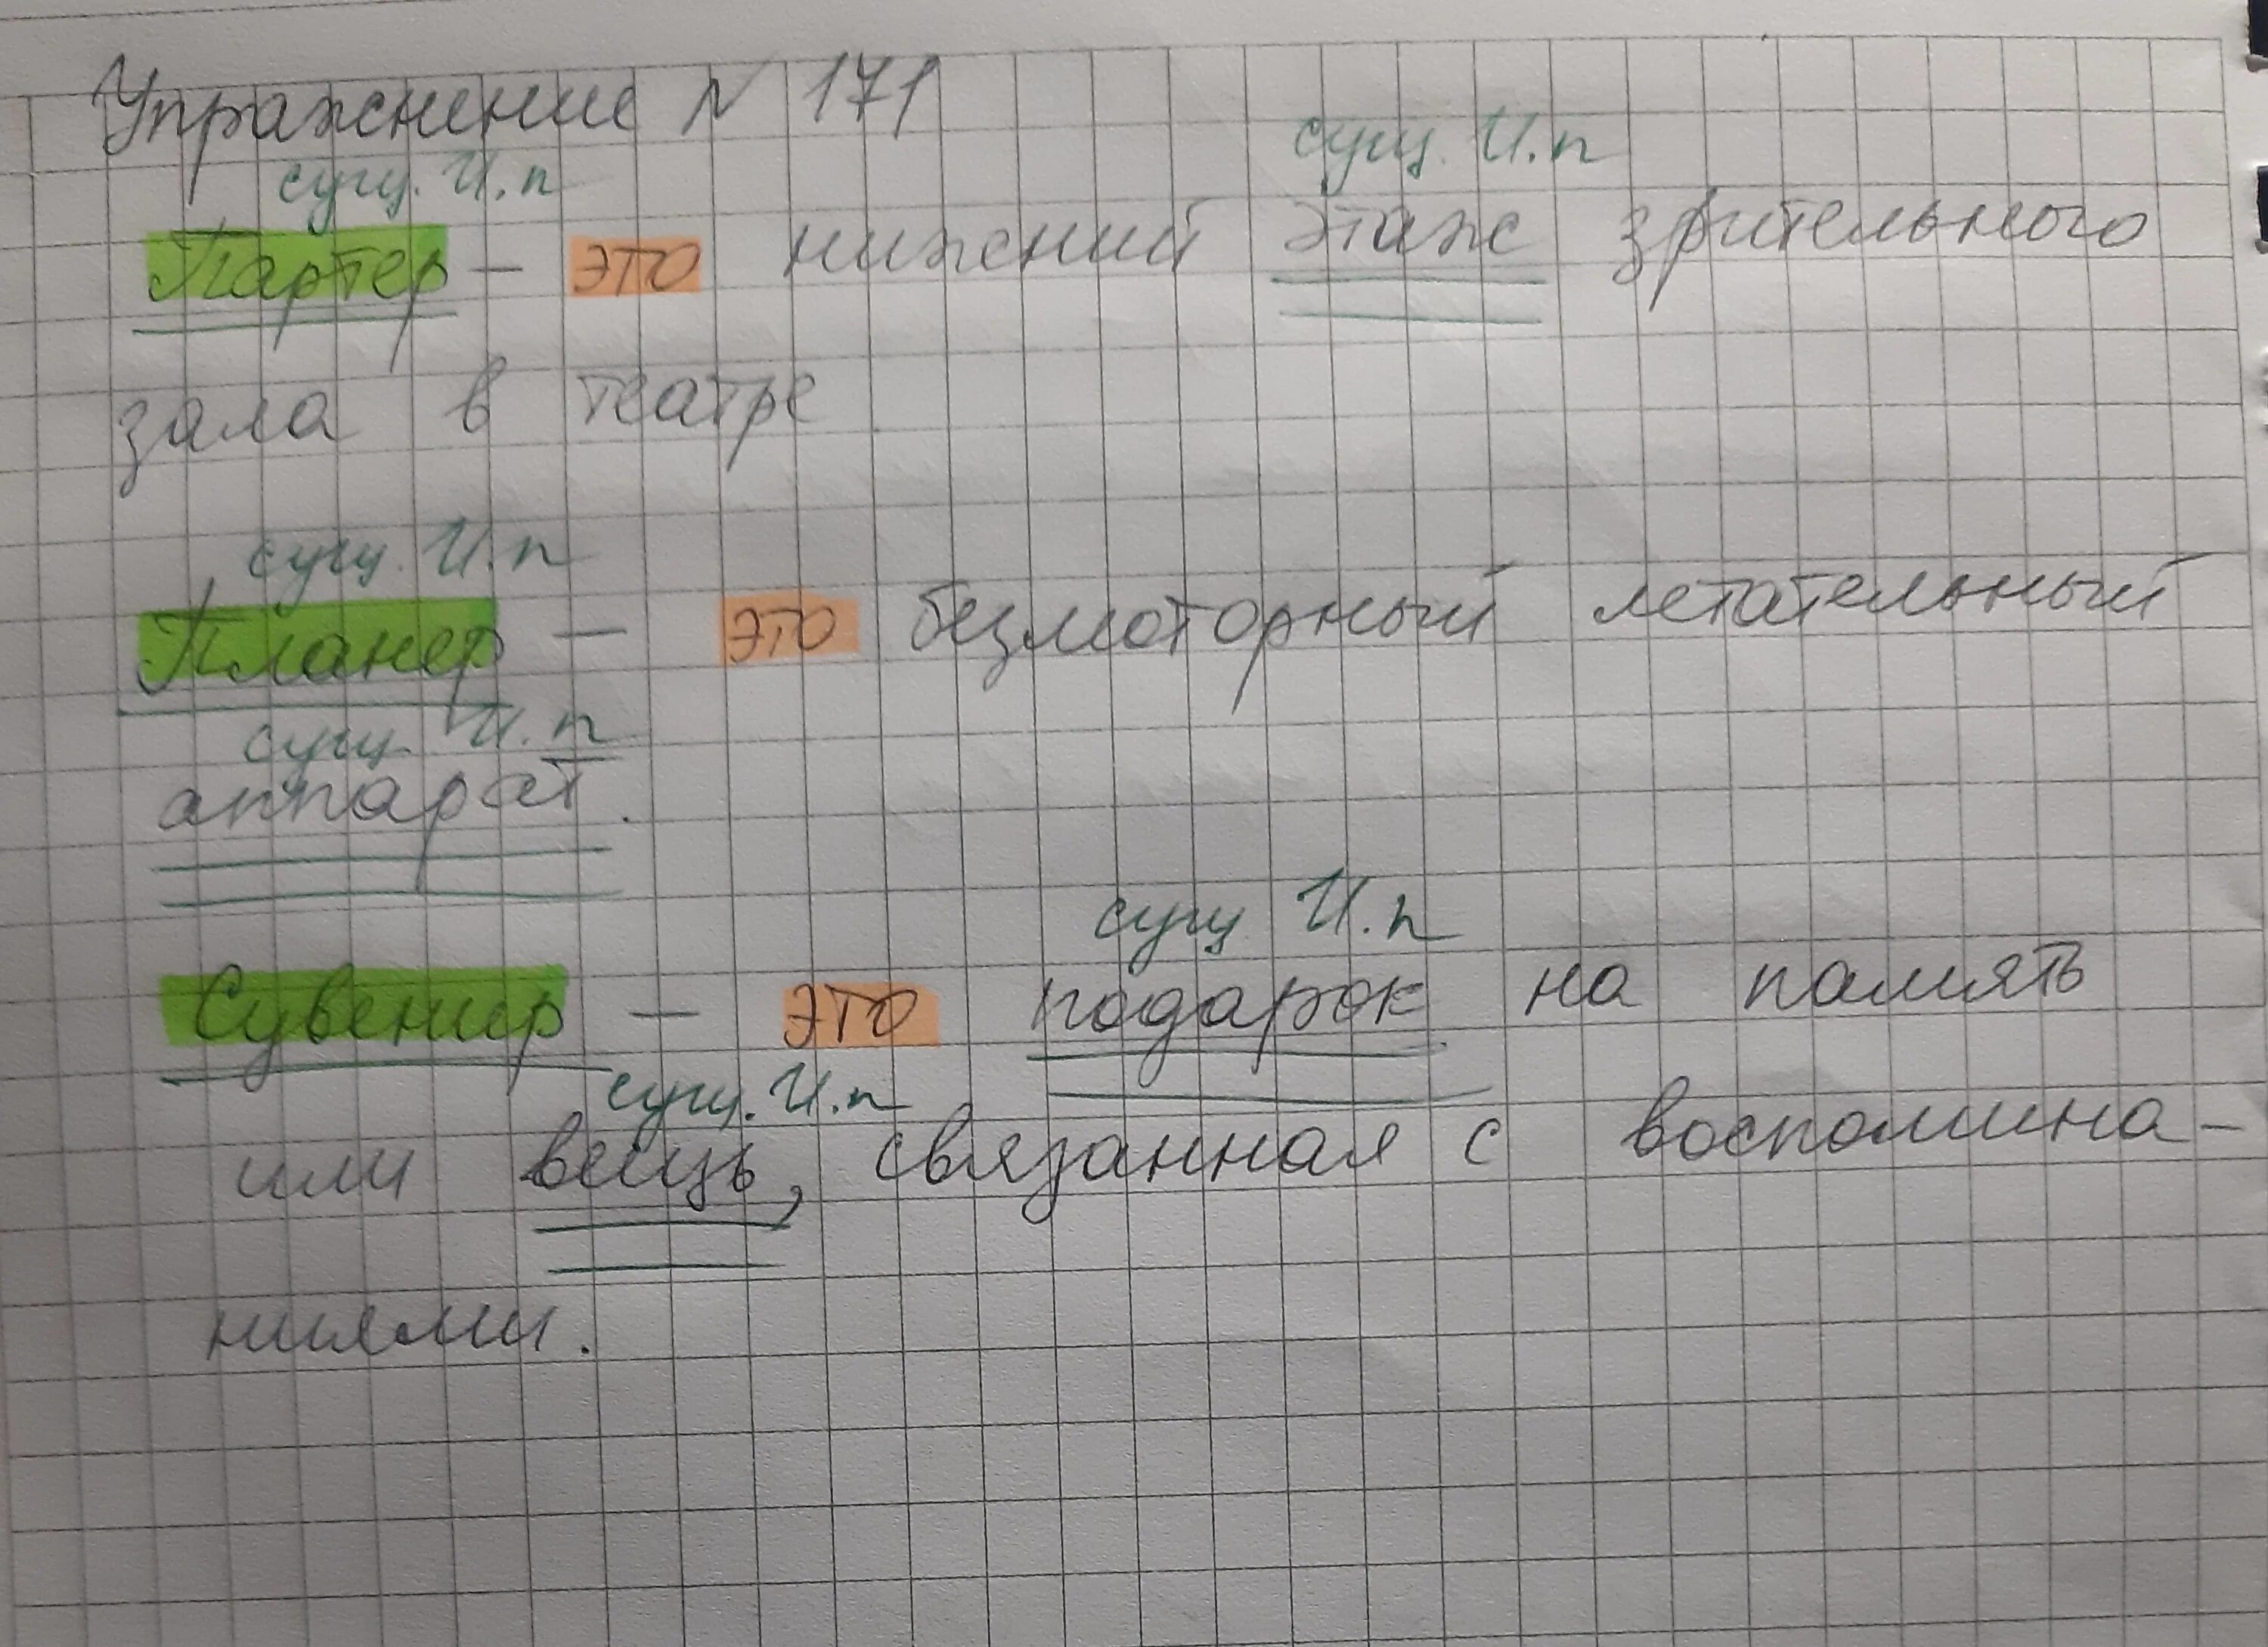 Упражнение N 171
сущ. И.п сущ. И.п
Партер — это нижний этаж зрительного
зала в театре
сущ. И.п
Планер — это безмоторный летательный
сущ. И.п
аппарат.
сущ И.п
Сувенир — это подарок на память
сущ. И.п
или вещь, связанная с воспомина-
ниями.